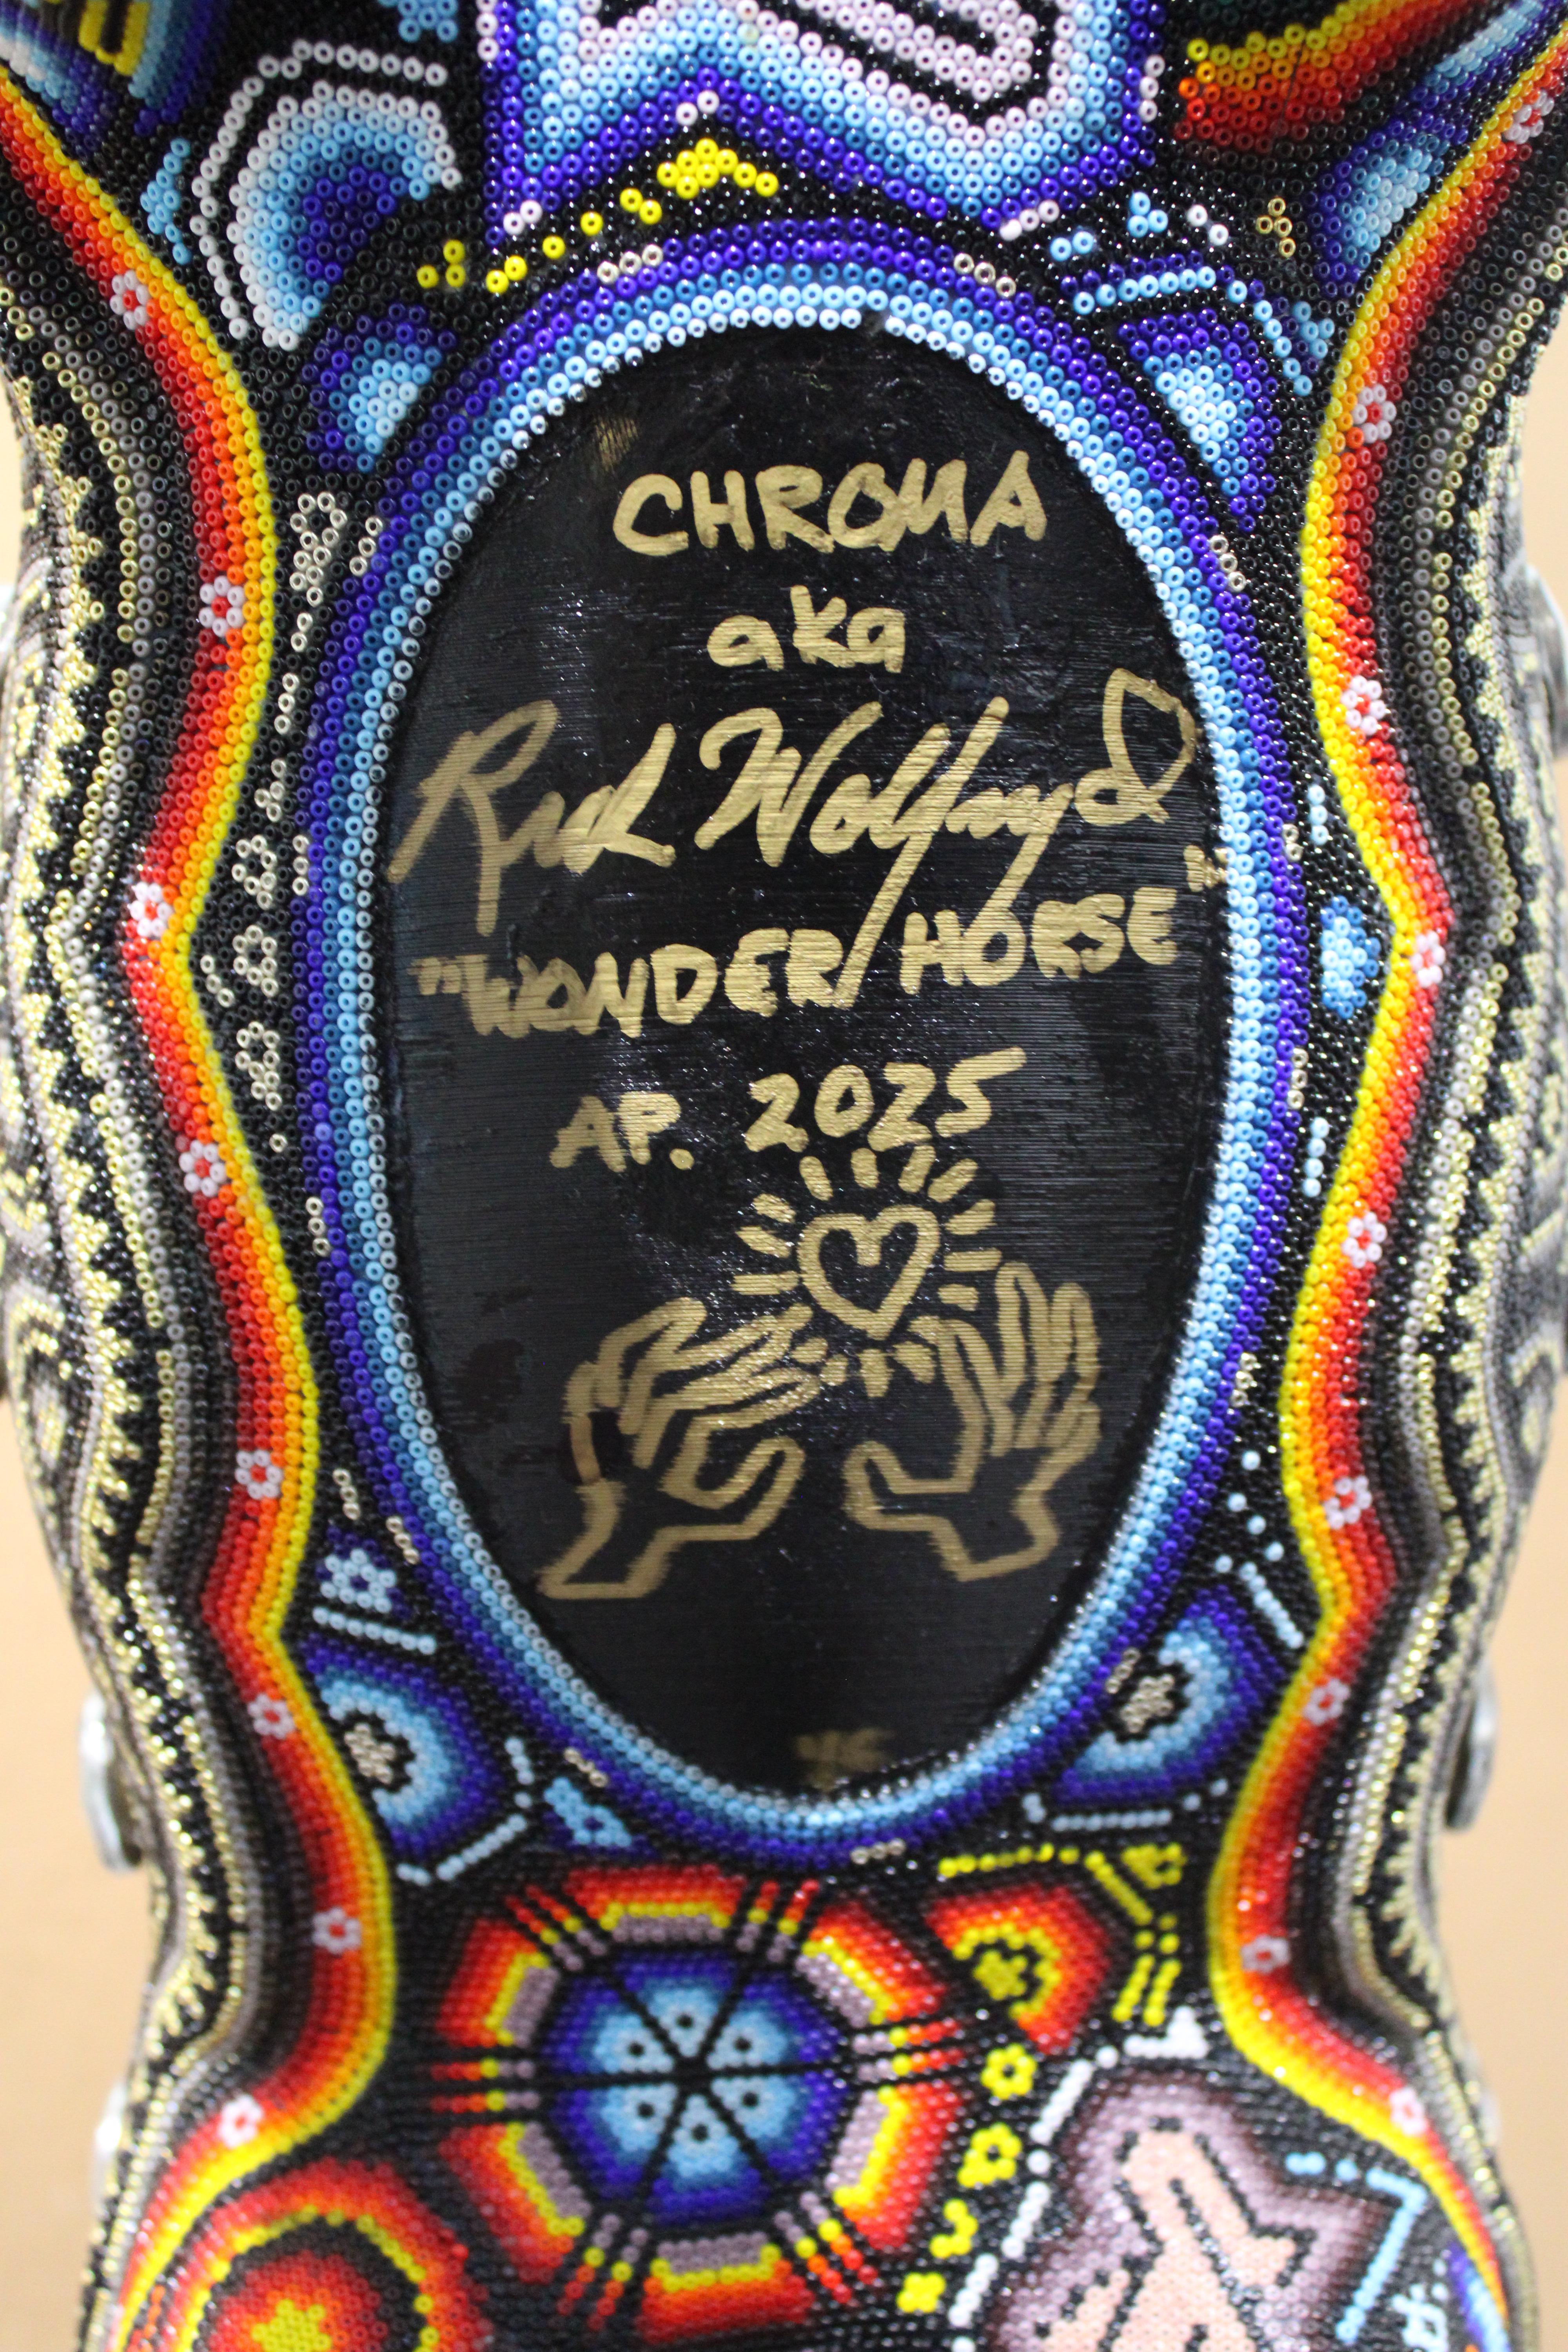 CHROMA
aka
Rick Wolfryd
"WONDER HORSE"
AP. 2025